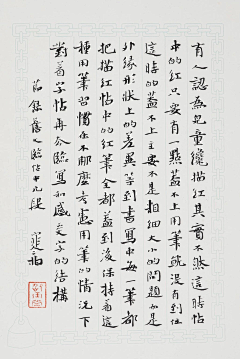 有人認為兒童纔描紅其實不然這時帖
中的紅只要有一點蓋不上用筆就沒有到位
這時的蓋不上主要不是粗細大小的問題而是
外緣形狀上的差異等到書寫中每一筆都
把描紅帖中的紅筆全都蓋到後保持着這
種用筆習慣你不那麼考慮用筆的情況下
對着字帖再去臨寫和感受字的結構